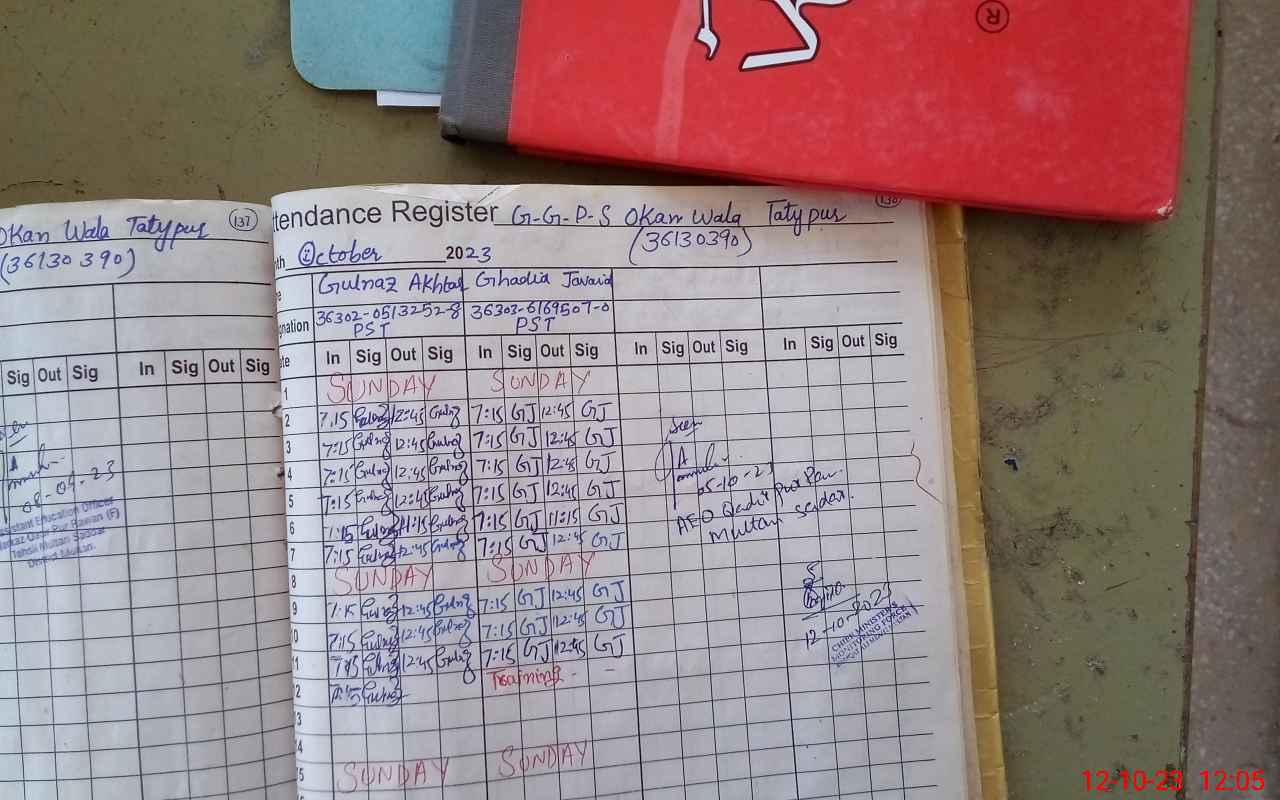 ®
Okan Wala Tatypur 137
(36130390)
Sig Out Sig In Sig Out Sig
08-09-23
Assistant Education Officer
Markaz Qadir Pur Rawan (F)
Tehsil Multan Saddar
District Multan.
ttendance Register G-G-P-S Okan Wala Tatypur 138
(36130390)
nth October 2023
Gulnaz Akhtar Ghadia Javaid
gnation 36302-0513252-8 36303-6169507-0
PST PST
ate In Sig Out Sig In Sig Out Sig In Sig Out Sig In Sig Out Sig
1 SUNDAY SUNDAY
2 7:15 Gulnaz 12:45 Gulnaz 7:15 GJ 12:45 GJ
3 7:15 Gulnaz 12:45 Gulnaz 7:15 GJ 12:45 GJ
4 7:15 Gulnaz 12:45 Gulnaz 7:15 GJ 12:45 GJ
5 7:15 Gulnaz 12:45 Gulnaz 7:15 GJ 12:45 GJ
6 7:15 Gulnaz 11:15 Gulnaz 7:15 GJ 11:15 GJ
7 7:15 Gulnaz 12:45 Gulnaz 7:15 GJ 12:45 GJ
8 SUNDAY SUNDAY
9 7:15 Gulnaz 12:45 Gulnaz 7:15 GJ 12:45 GJ
10 7:15 Gulnaz 12:45 Gulnaz 7:15 GJ 12:45 GJ
11 7:15 Gulnaz 12:45 Gulnaz 7:15 GJ 12:45 GJ
12 7:15 Gulnaz Training - -
13
14
15 SUNDAY SUNDAY
Seen
05-10-23
AEO Qadir Pur Ran
Multan saddar.
12-10-2023
CHIEF MINISTER'S
MONITORING FORCE
12-10-23 12:05